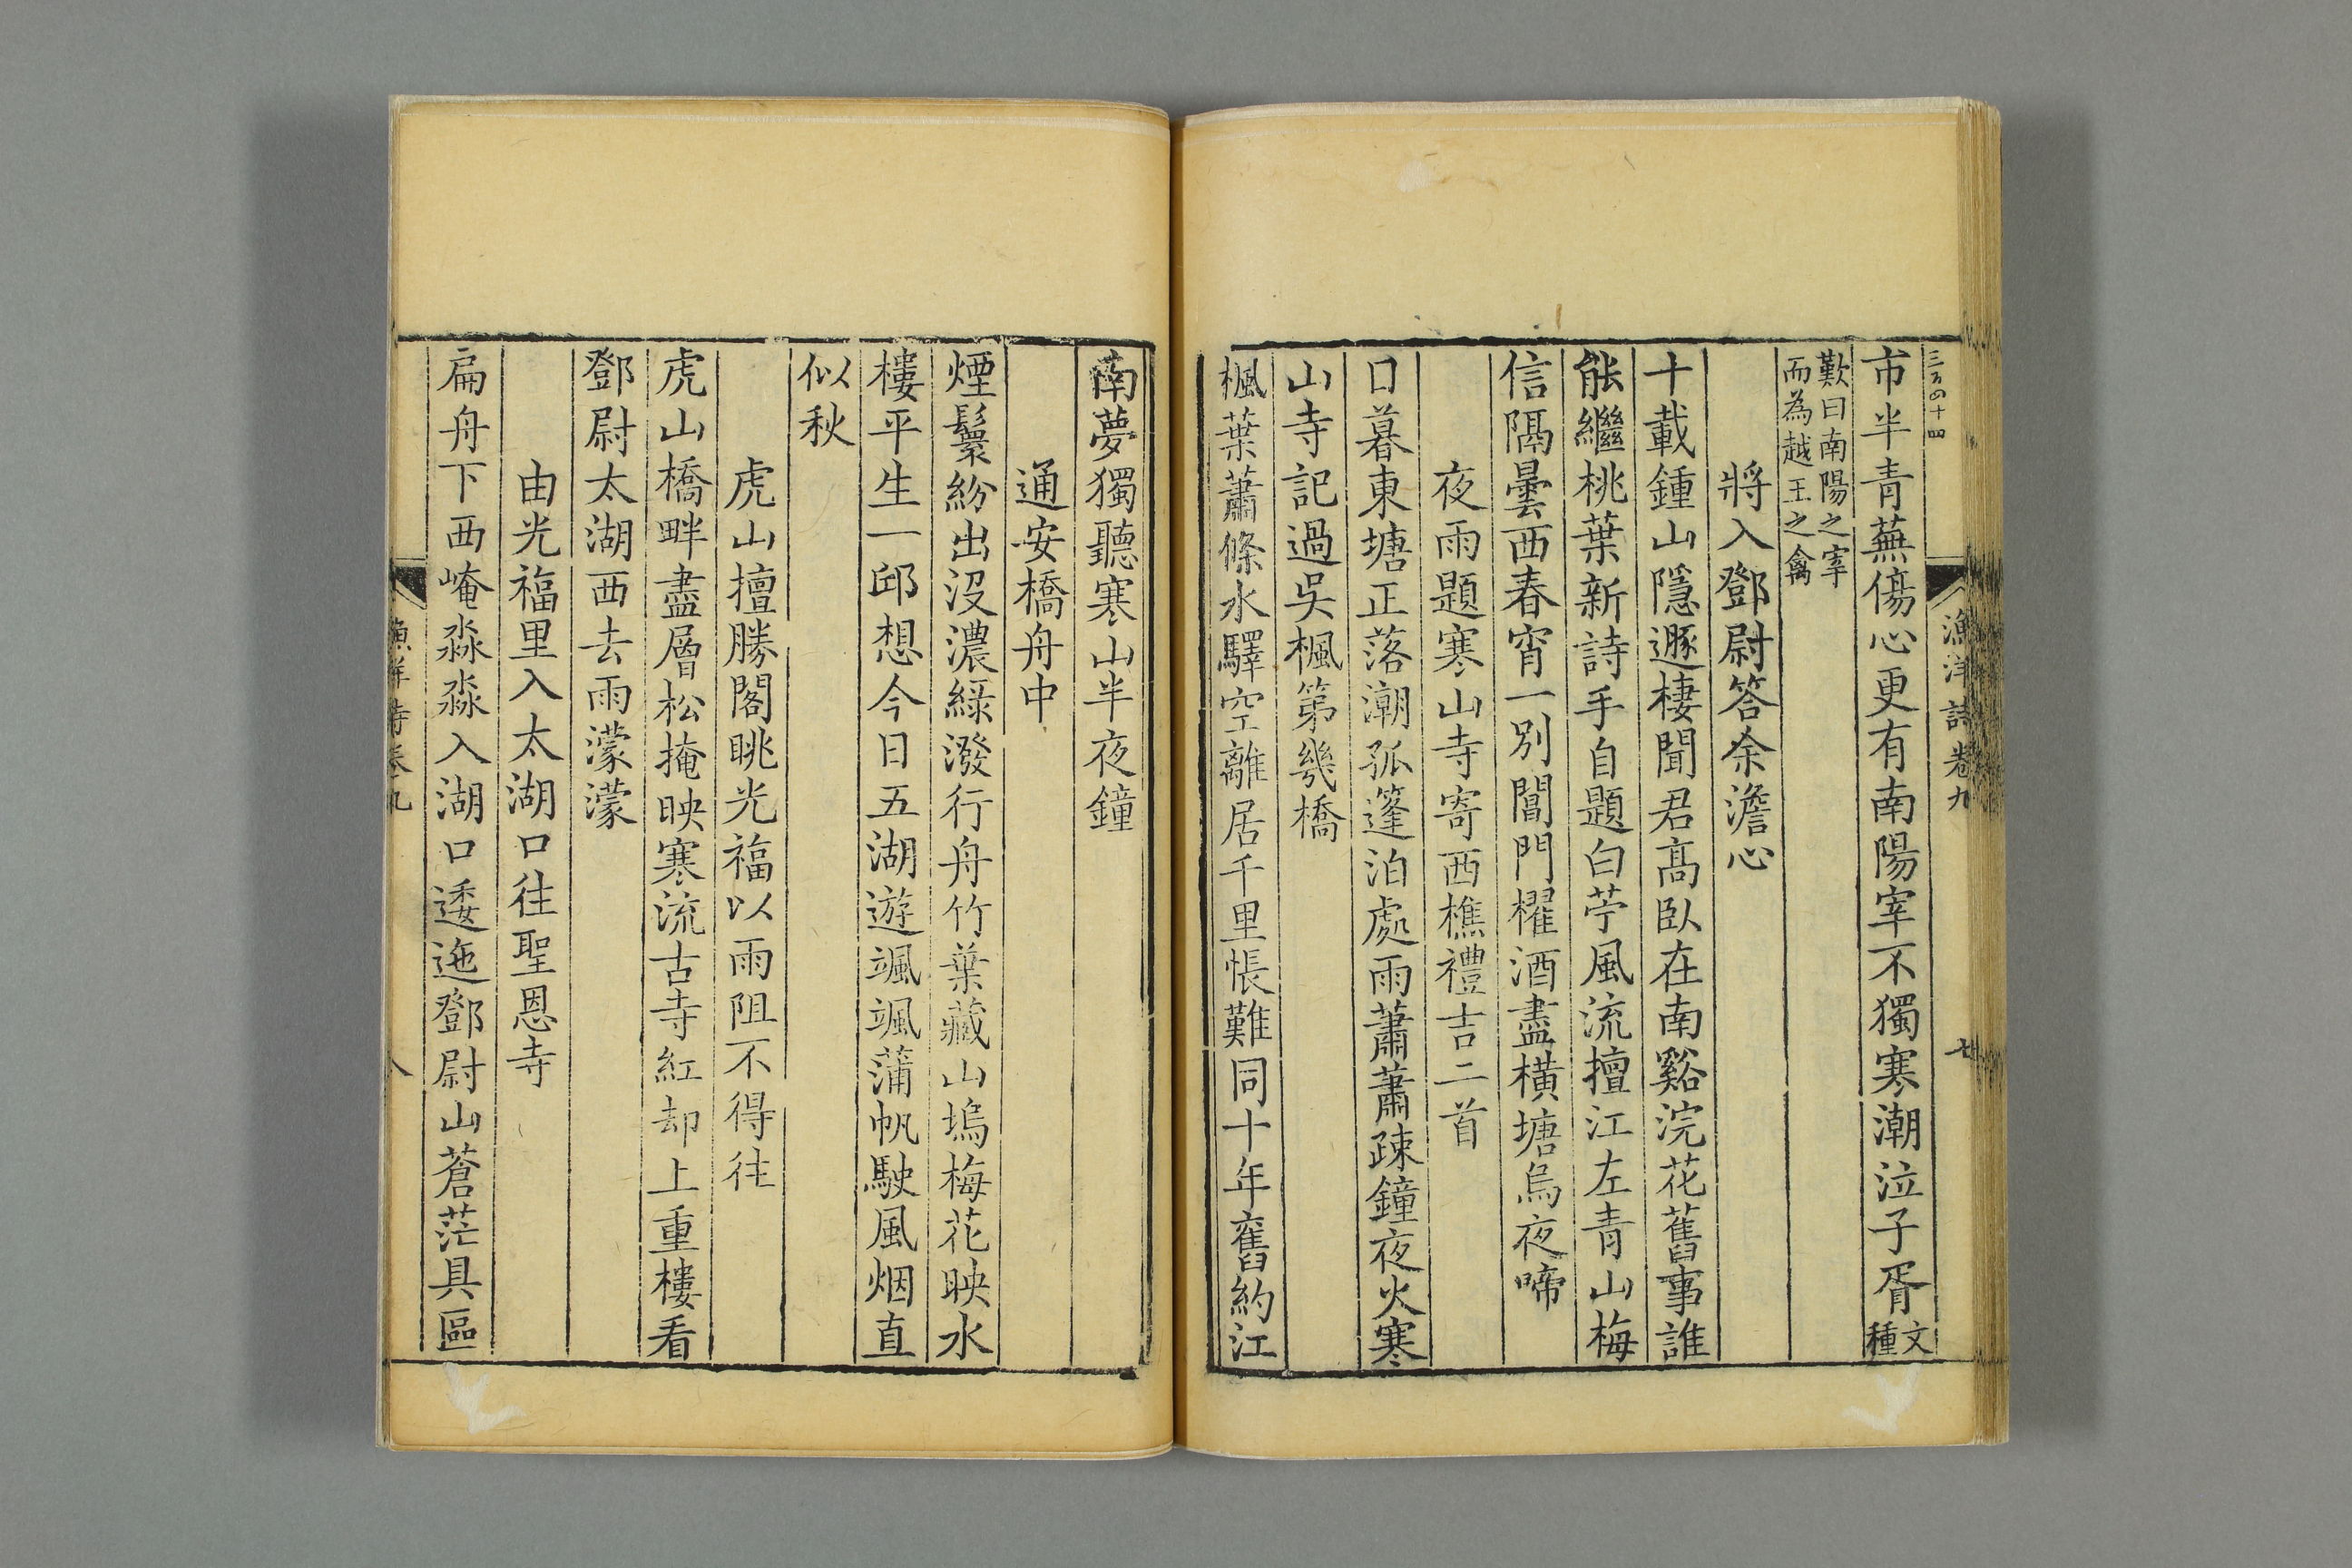 漁洋詩卷九
七
市半青蕪傷心更有南陽宰不獨寒潮泣子胥文種
歎曰南陽之宰
而為越王之禽
將入鄧尉答余澹心
十載鍾山隱遯棲聞君高臥在南谿浣花舊事誰
能繼桃葉新詩手自題白苧風流擅江左青山梅
信隔曇西春宵一別閶門櫂酒盡橫塘烏夜啼
夜雨題寒山寺寄西樵禮吉二首
日暮東塘正落潮孤篷泊處雨蕭蕭疎鐘夜火寒
山寺記過吳楓第幾橋
楓葉蕭條水驛空離居千里悵難同十年舊約江
南夢獨聽寒山半夜鐘
通安橋舟中
煙鬟紛出沒濃綠潑行舟竹葉藏山塢梅花映水
樓平生一邱想今日五湖遊颯颯蒲帆駛風烟直
似秋
虎山擅勝閣眺光福以雨阻不得往
虎山橋畔盡層松掩映寒流古寺紅却上重樓看
鄧尉太湖西去雨濛濛
由光福里入太湖口往聖恩寺
扁舟下西崦淼淼入湖口逶迤鄧尉山蒼茫具區